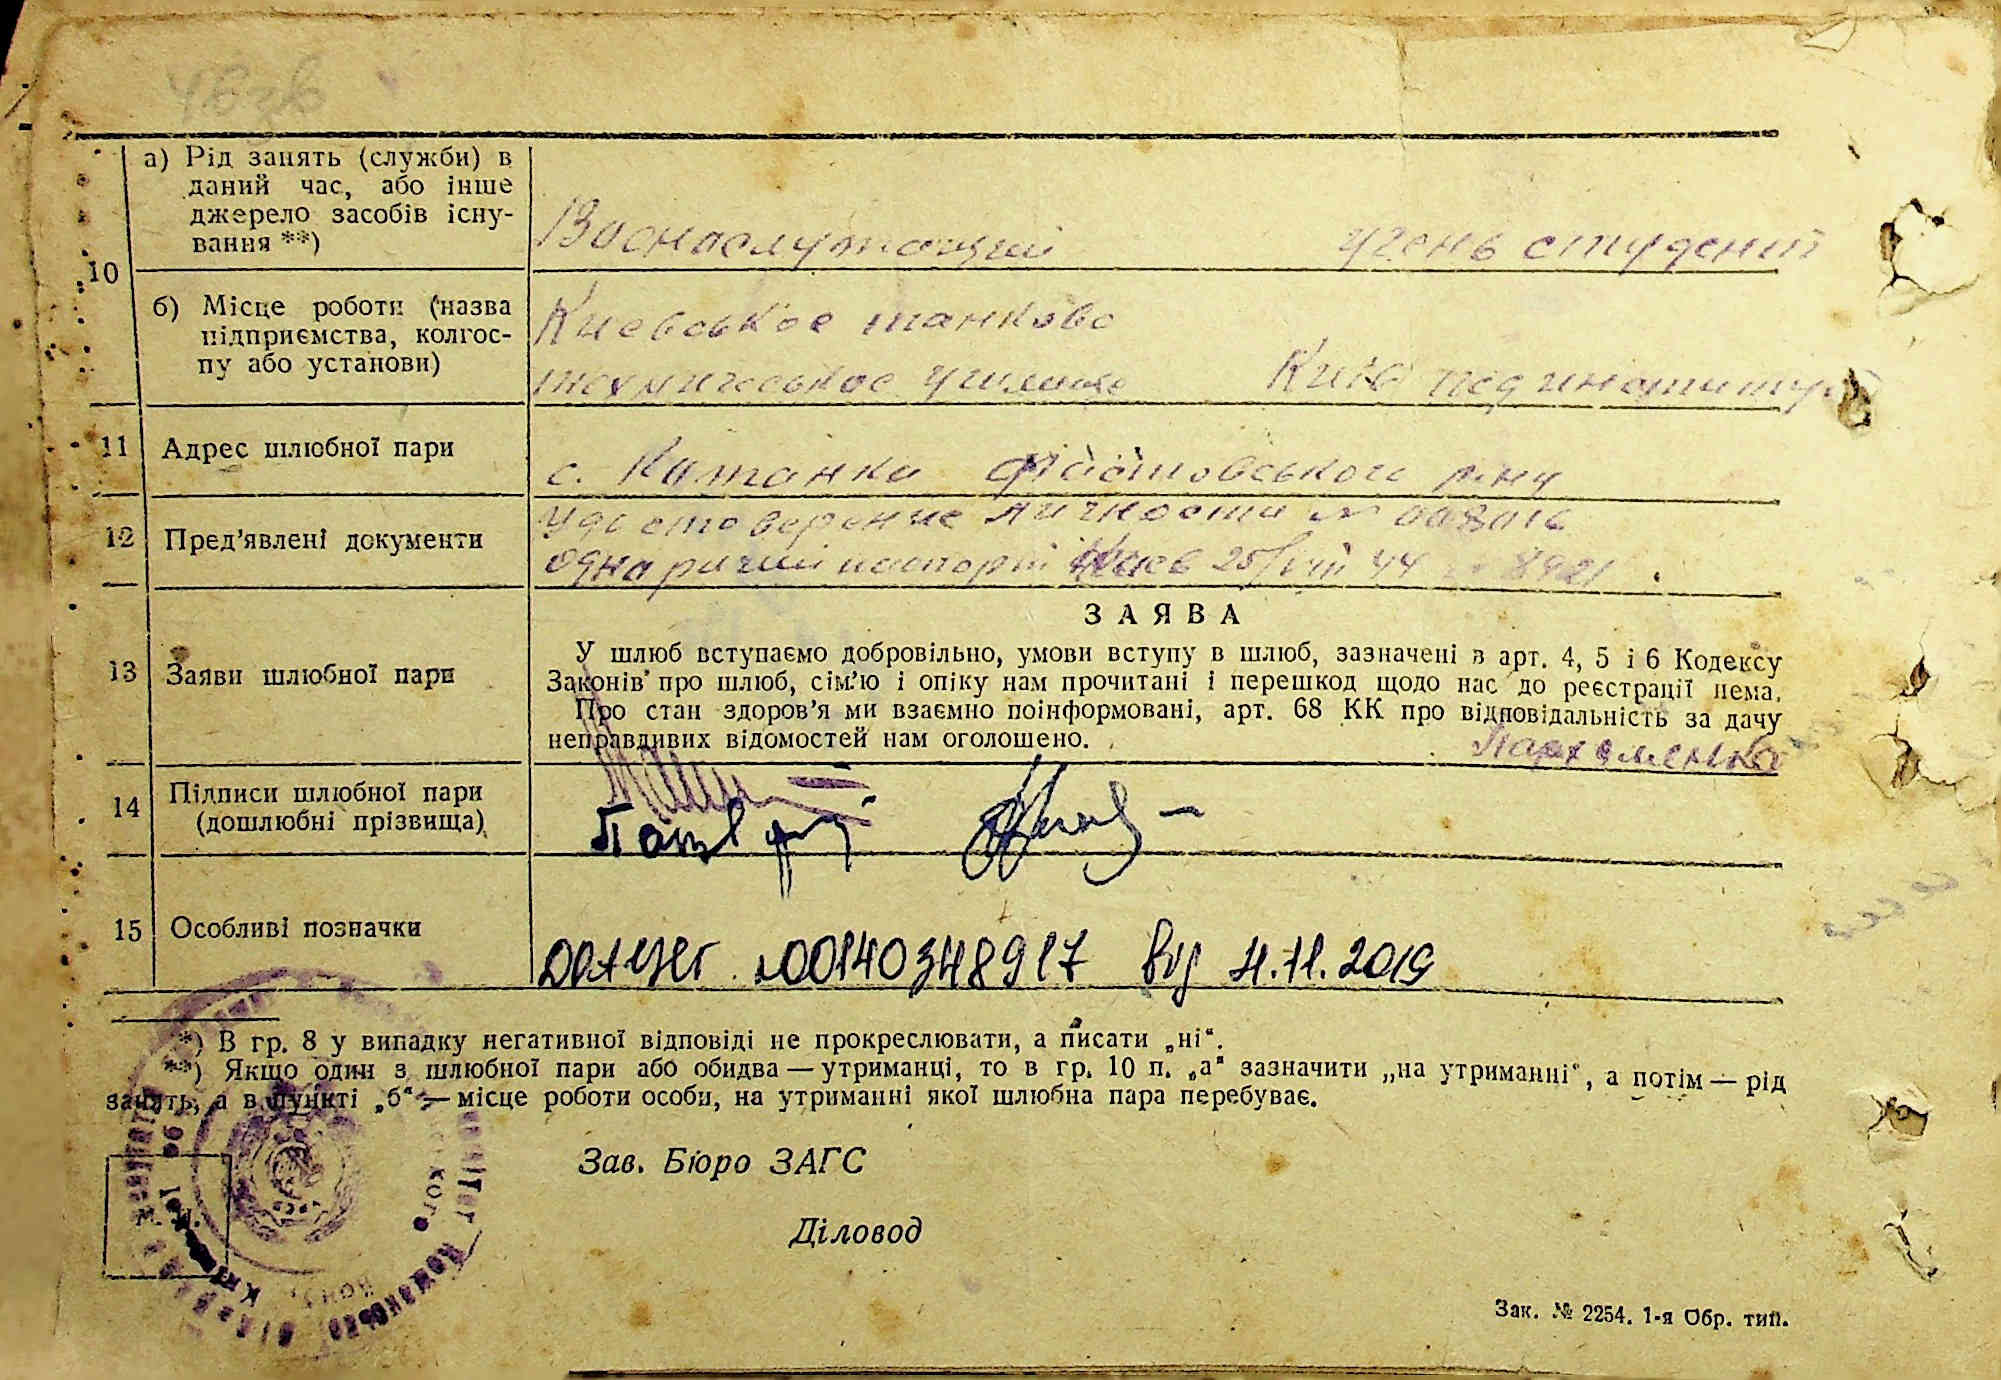 а) Рід занять (служби) в
даний час, або інше
джерело засобів існу-
вання **)
Воєнослужащий учень студент
10
б) Місце роботи (назва
підприємства, колгос-
пу або установи)
Киевськое танково
техничеськое училище Київ педінститут
11 Адрес шлюбної пари
с. Мотанка Фастовського р-ну
12 Пред'явлені документи
Удостоверение личности № 008016
однорічний паспорт Киев 25/VIII 44 8921
ЗАЯВА
13 Заяви шлюбної пари
У шлюб вступаємо добровільно, умови вступу в шлюб, зазначені в арт. 4, 5 і 6 Кодексу
Законів про шлюб, сім'ю і опіку нам прочитані і перешкод щодо нас до реєстрації нема.
Про стан здоров'я ми взаємно поінформовані, арт. 68 КК про відповідальність за дачу
неправдивих відомостей нам оголошено.
Пархоменко
14 Підписи шлюбної пари
(дошлюбні прізвища)
15 Особливі позначки
00140348917 від 4.11.2019
*) В гр. 8 у випадку негативної відповіді не прокреслювати, а писати „ні“.
**) Якщо один з шлюбної пари або обидва — утриманці, то в гр. 10 п. „а“ зазначити „на утриманні“, а потім — рід
занять, а в пункті „б“ — місце роботи особи, на утриманні якої шлюбна пара перебуває.
Зав. Бюро ЗАГС
М. П.
Діловод
Зак. № 2254. 1-я Обр. тип.